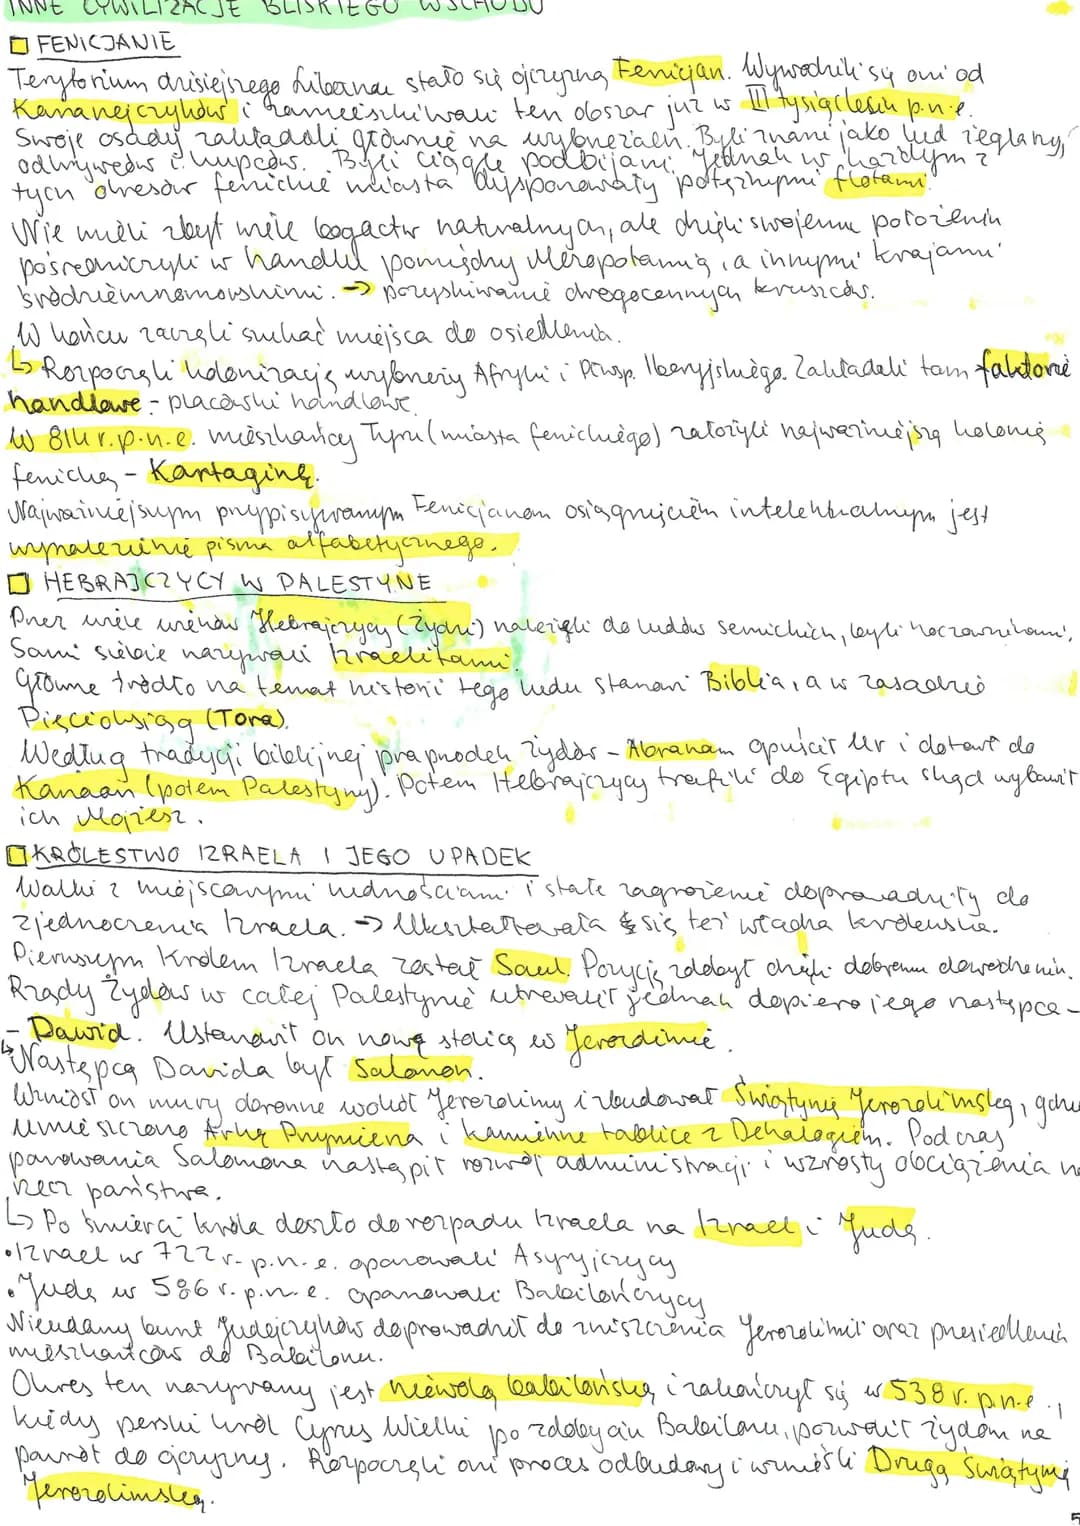 INNE CYWILIZACJE BLISKIEGO WSCHODU
FENICJANIE
Terytorium dzisiejszego Libanu stało się ojczyzną Fenicjan. Wywodzili się oni od
Kananejczyków i zamieszkiwali ten obszar już w III tysiącleciu p.n.e.
Swoje osady zakładali głównie na wybrzeżach. Byli znani jako lud żeglarzy,
odkrywców i kupców. Byli ciągle podbijani. Jednak w każdym z
tych okresów fenickie miasta dysponowały potężnymi flotami.
Nie mieli zbyt wiele bogactw naturalnych, ale dzięki swojemu położeniu
pośredniczyli w handlu pomiędzy Mezopotamią, a innymi krajami
śródziemnomorskimi. → pozyskiwanie drogocennych kruszców.
W końcu zaczęli szukać miejsca do osiedlenia.
↳ Rozpoczęli kolonizację wybrzeży Afryki i Płwsp. Iberyjskiego. Zakładali tam faktorie
handlowe - placówki handlowe.
W 814 r.p.n.e. mieszkańcy Tyru (miasta fenickiego) założyli najważniejszą kolonię
fenicką - Kartaginę.
Najważniejszym przypisywanym Fenicjanom osiągnięciem intelektualnym jest
wynalezienie pisma alfabetycznego.
HEBRAJCZYCY W PALESTYNE
Przez wiele wieków Hebrajczycy (Żydzi) należeli do ludów semickich, byli koczownikami.
Sami siebie nazywali Izraelitami.
Główne źródło na temat historii tego ludu stanowi Biblia, a w zasadzie
Pięcioksiąg (Tora).
Według tradycji biblijnej praprzodek Żydów - Abraham opuścił Ur i dotarł do
Kanaan (potem Palestyny). Potem Hebrajczycy trafili do Egiptu skąd wybawił
ich Mojżesz.
KRÓLESTWO IZRAELA I JEGO UPADEK
Walki z miejscowymi ludnościami i stałe zagrożenie doprowadziły do
zjednoczenia Izraela. → Ukształtowała się też władza królewska.
Pierwszym Królem Izraela został Saul. Pozycję zdobył dzięki dobremu dowodzeniu.
Rządy Żydów w całej Palestynie utrwalił jednak dopiero jego następca-
- Dawid. Ustanowił on nową stolicę w Jerozolimie.
↳ Następcą Davida był Salomon.
Wzniósł on mury obronne wokół Jerozolimy i zbudował Świątynię Jerozolimską, gdzie
umieszczono Arkę Przymierza i kamienne tablice z Dekalogiem. Podczas
panowania Salomona nastąpił rozwój administracji i wzrosty obciążenia na
rzecz państwa.
↳ Po śmierci króla doszło do rozpadu Izraela na Izrael i Judę.
• Izrael w 722 r. p.n.e. opanowali Asyryjczycy
• Judę w 586 r. p.n.e. opanowali Babilończycy
Nieudany bunt Judejczyków doprowadził do zniszczenia Jerozolimii oraz przesiedlenia
mieszkańców do Babilonu.
Okres ten nazywany jest niewolą babilońską i zakończył się w 538 r. p.n.e.,
kiedy perski król Cyrus Wielki po zdobyciu Babilonu, pozwolił Żydom na
powrót do ojczyzny. Rozpoczęli oni proces odbudowy i wznieśli Drugą Świątynię
Jerozolimską.
5